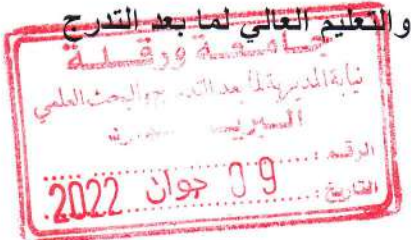 والتعليم العالي لما بعد التدرج
جامعة ورقلة
نيابة المديرية لما بعد التدرج والبحث العلمي
البريد
الرقم :
التاريخ : 09 جوان 2022